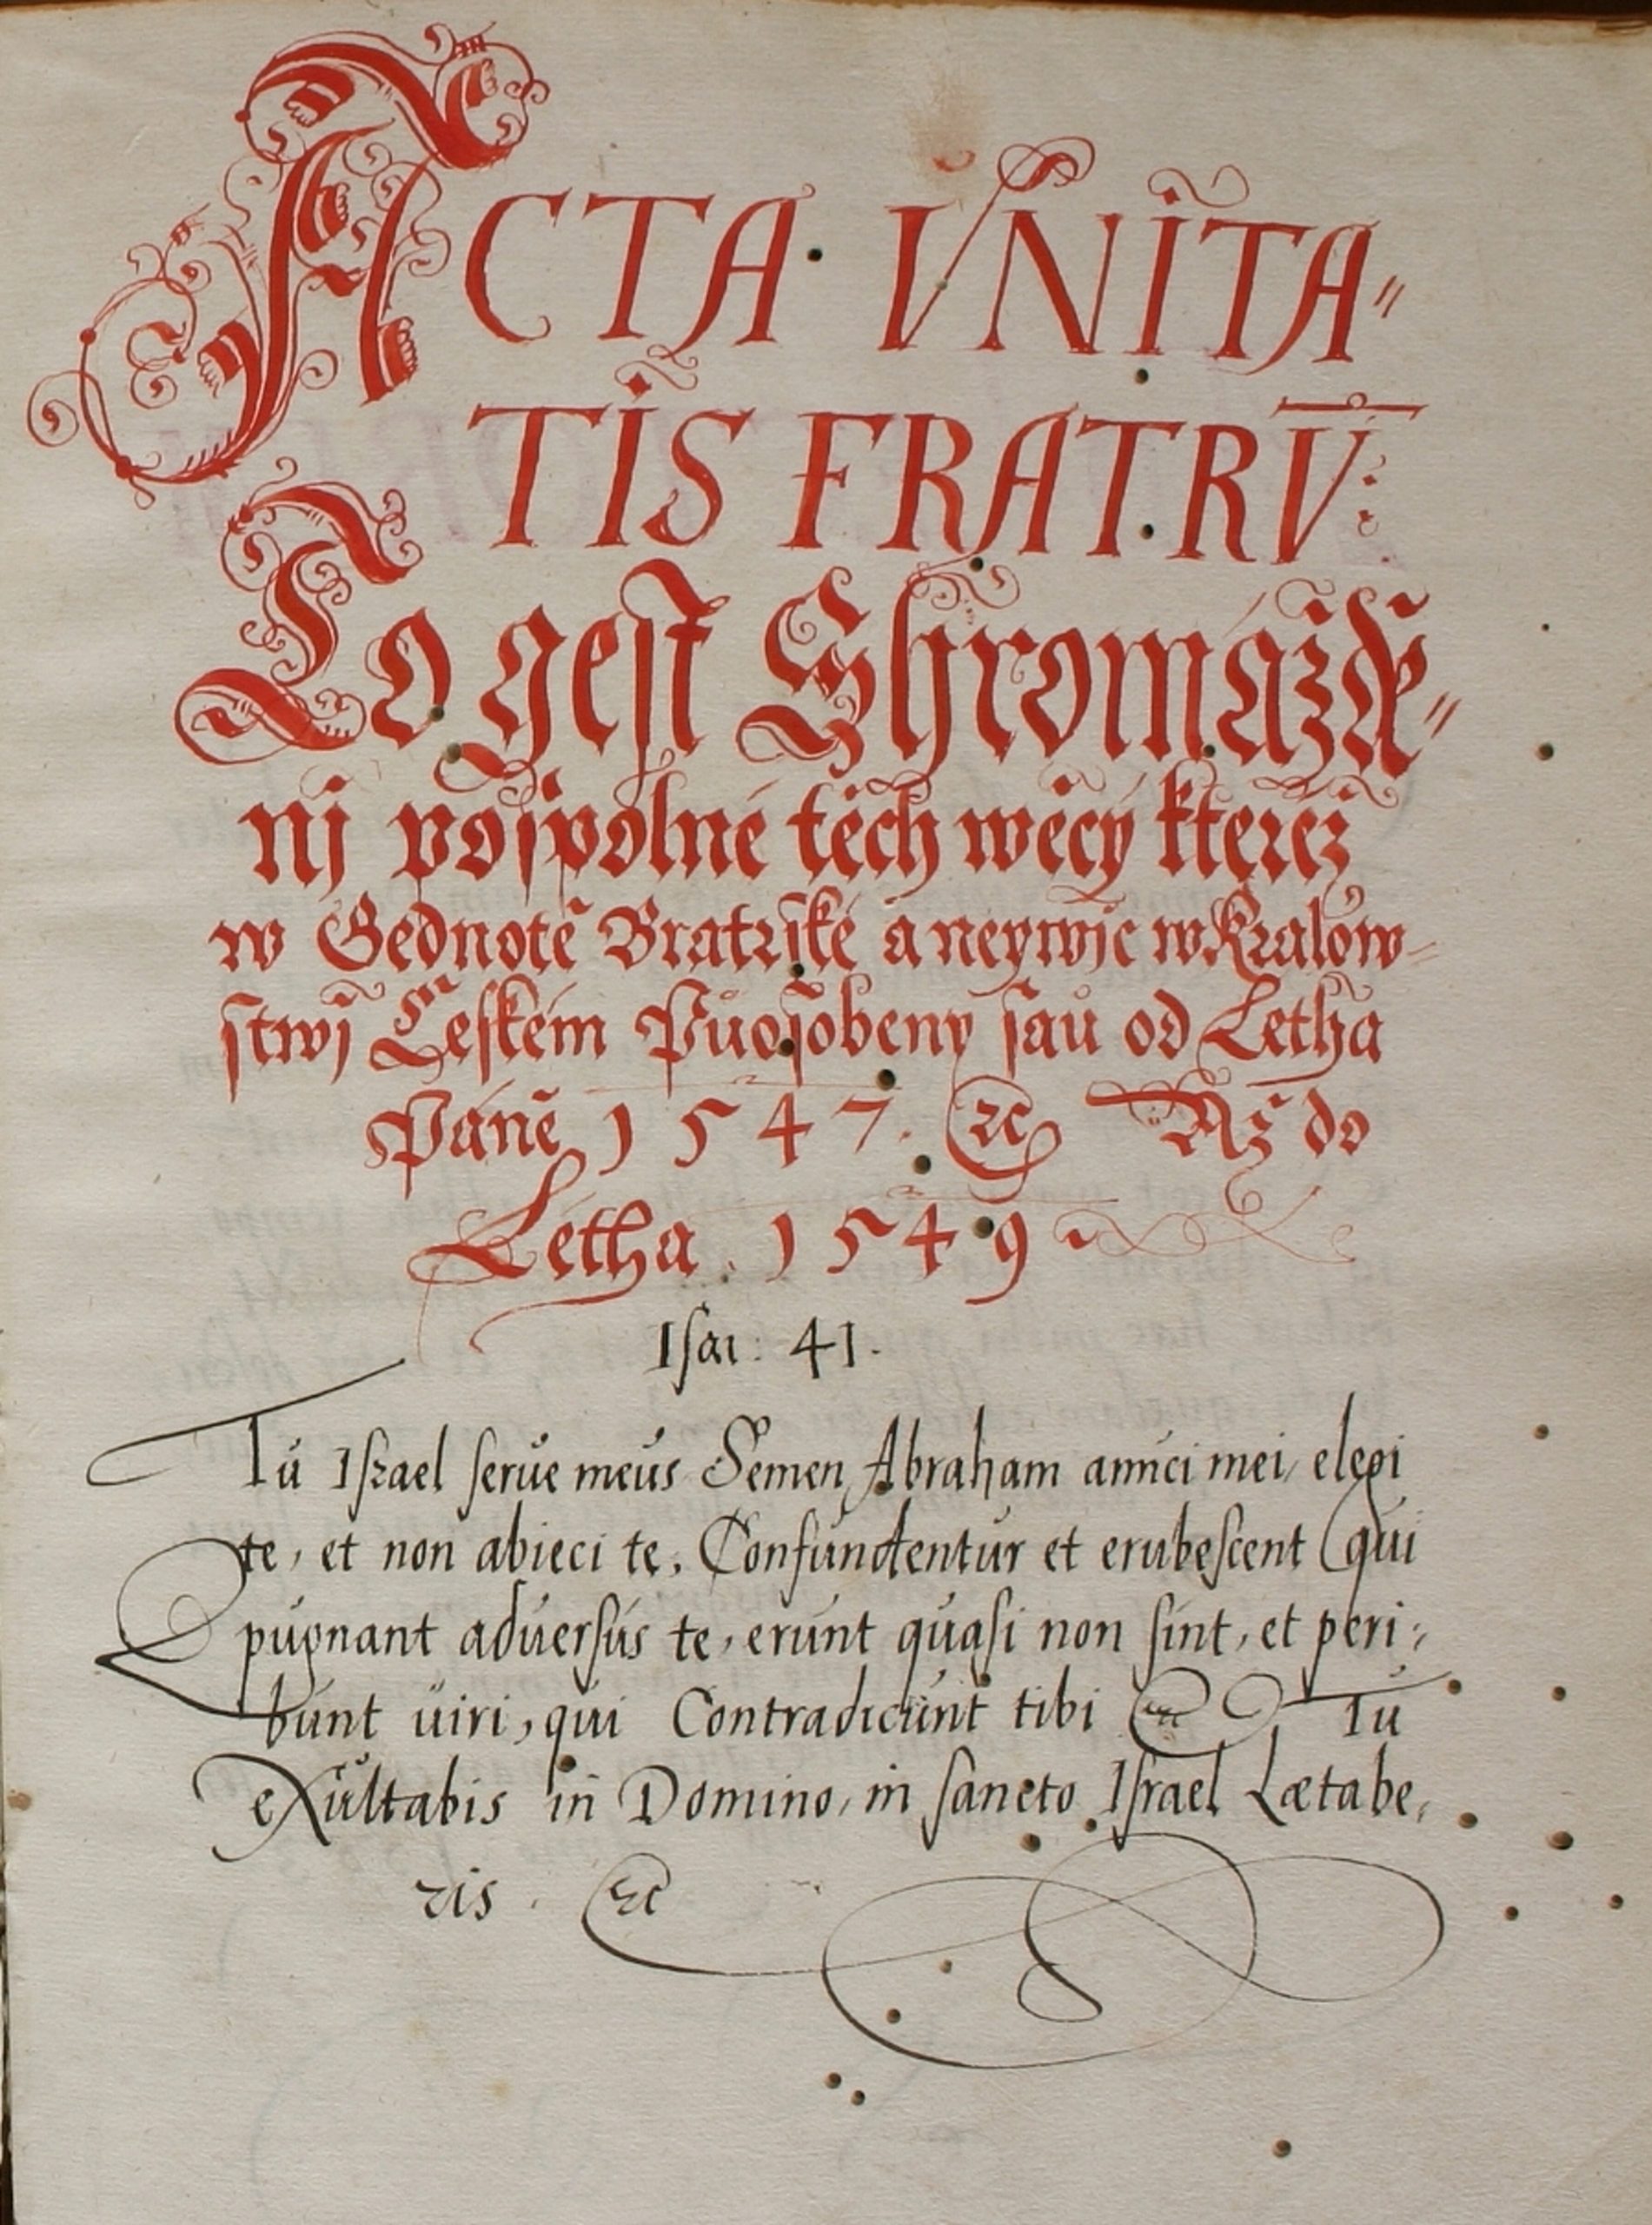 ACTA· VNITA〃
TIS FRATRV̄:
To gest Shromáždě〃
nj pospolné těch wěcý kteréž
w Gednotě Bratrské a neywjc w Kralow-
stwj Cžeském Půosobeny sau od Letha
Páně 1547. ꝛc Až do
Létha . 1549
Isai: 41.
Tu Israel serue meus Semen Abraham amici mei, elegi
te, et non abieci te. Confundentur et erubescent qui
pugnant aduersus te, erunt quasi non sint, et peri:
bunt uiri, qui Contradicunt tibi ꝛc Tu
eXultabis in Domino, in sancto Israel Lætabe,
ris . ꝛc